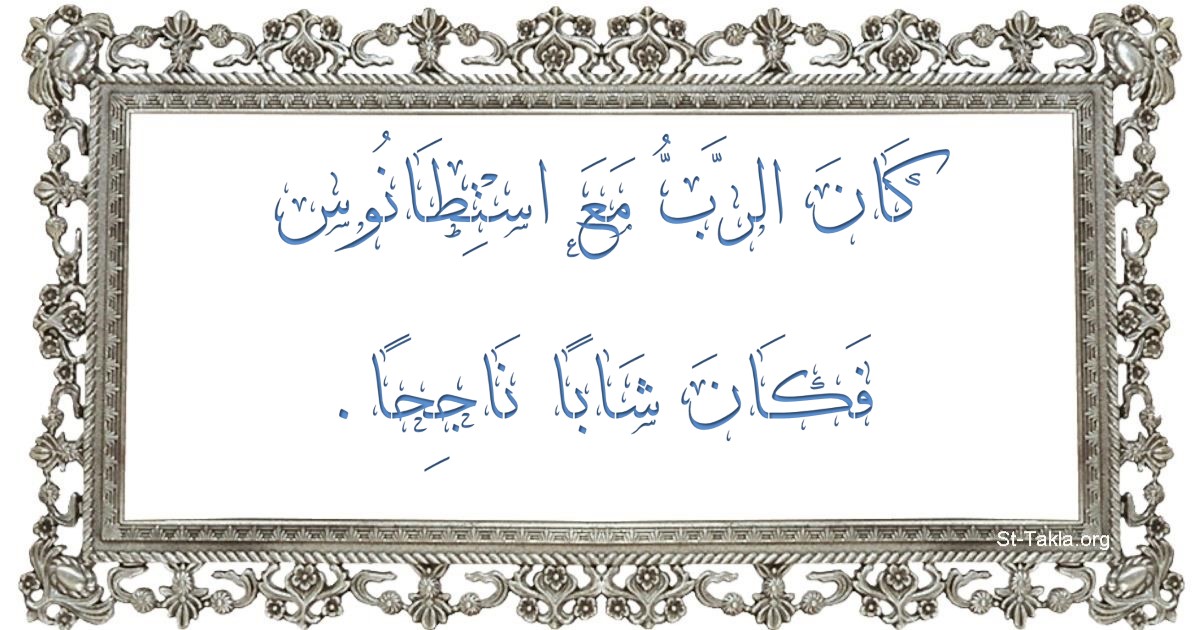 كَانَ الرَّبُّ مَعَ اسْتِطَانُوس
فَكَانَ شَابًا نَاجِحًا .
St-Takla.org